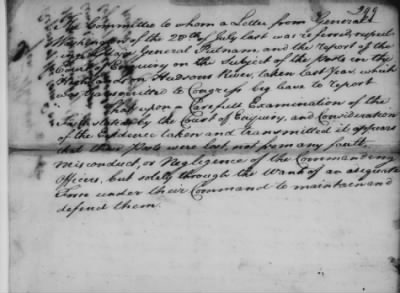 299
The Committee to whom a Letter from General
Washington of the 28th of July last was referred, respect
ing Major General Putnam, and the report of the
Court of Enquiry on the Subject of the Posts in the
Highlands on Hudsons River, taken last Year which
was transmitted to Congress beg leave to report
That upon a Carefull Examination of the
Facts stated by the Court of Enquiry, and Consideration
of the Evidence taken and transmitted it appears
that those Posts were lost, not from any fault,
misconduct, or Negligence of the Commanding
Officers, but solely through the want of an adequate
Force under their Command to maintain and
defend them.